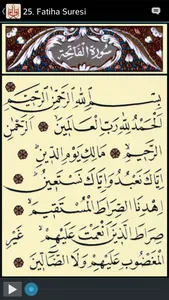 25. Fatiha Suresi
سورة الفاتحة
بِسْمِ اللّٰهِ الرَّحْمٰنِ الرَّحِيمِ
اَلْحَمْدُ لِلّٰهِ رَبِّ الْعَالَمِينَ ۝ اَلرَّحْمٰنِ
الرَّحِيمِ ۝ مَالِكِ يَوْمِ الدِّينِ ۝
اِيَّاكَ نَعْبُدُ وَاِيَّاكَ نَسْتَعِينُ ۝
اِهْدِنَا الصِّرَاطَ الْمُسْتَقِيمَ ۝
صِرَاطَ الَّذِينَ اَنْعَمْتَ عَلَيْهِمْ ۝ غَيْرِ
الْمَغْضُوبِ عَلَيْهِمْ وَلَا الضَّالِّينَ ۝